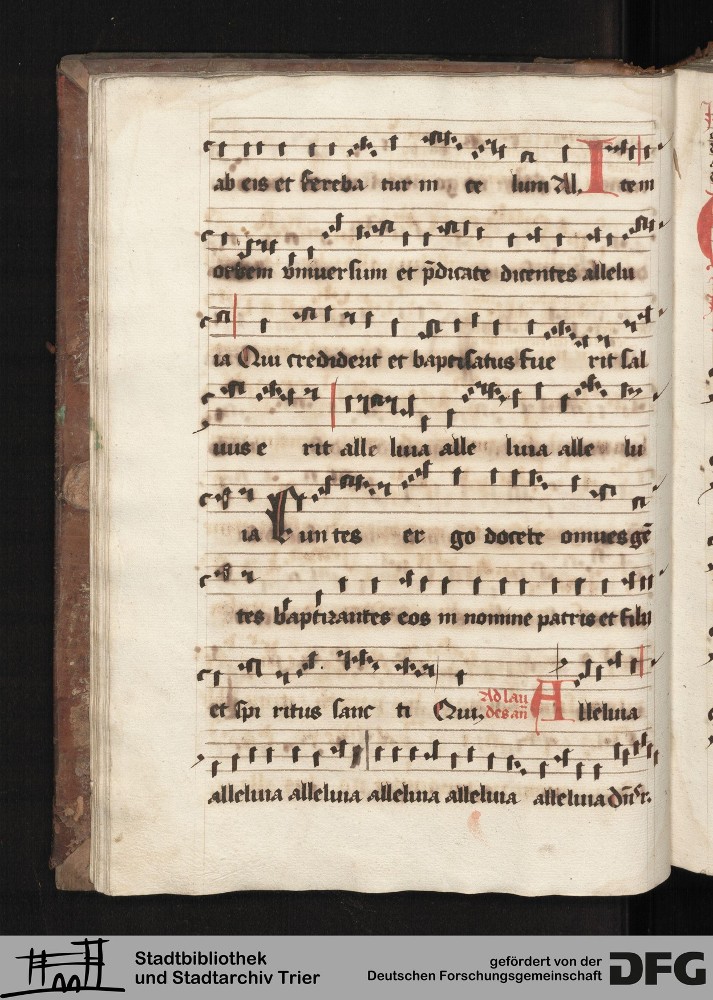 ab eis et fereba tur in ce lum Al, Item
orbem vniuersum et p̄dicate dicentes allelu
ia Qui crediderit et baptisatus fue rit sal
uus e rit alle luia alle luia alle lu
ia Euntes er go docete omnes gē
tes baptizantes eos in nomine patris et filii
et spi ritus sanc ti Qui, Ad lau
des añ Alleluia
alleluia alleluia alleluia alleluia alleluia
Stadtbibliothek
und Stadtarchiv Trier
gefördert von der
Deutschen Forschungsgemeinschaft
DFG